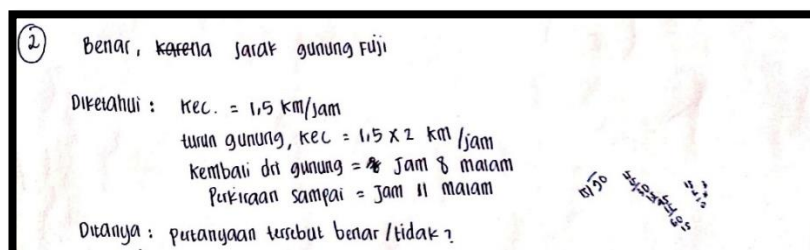 2 Benar, karena Jarak gunung Fuji
Diketahui : kec. = 1,5 km/jam
turun gunung, kec = 1,5 x 2 km/jam
kembali dri gunung = jam 8 malam
Perkiraan sampai = jam 11 malam
Ditanya : pertanyaan tersebut benar/tidak?